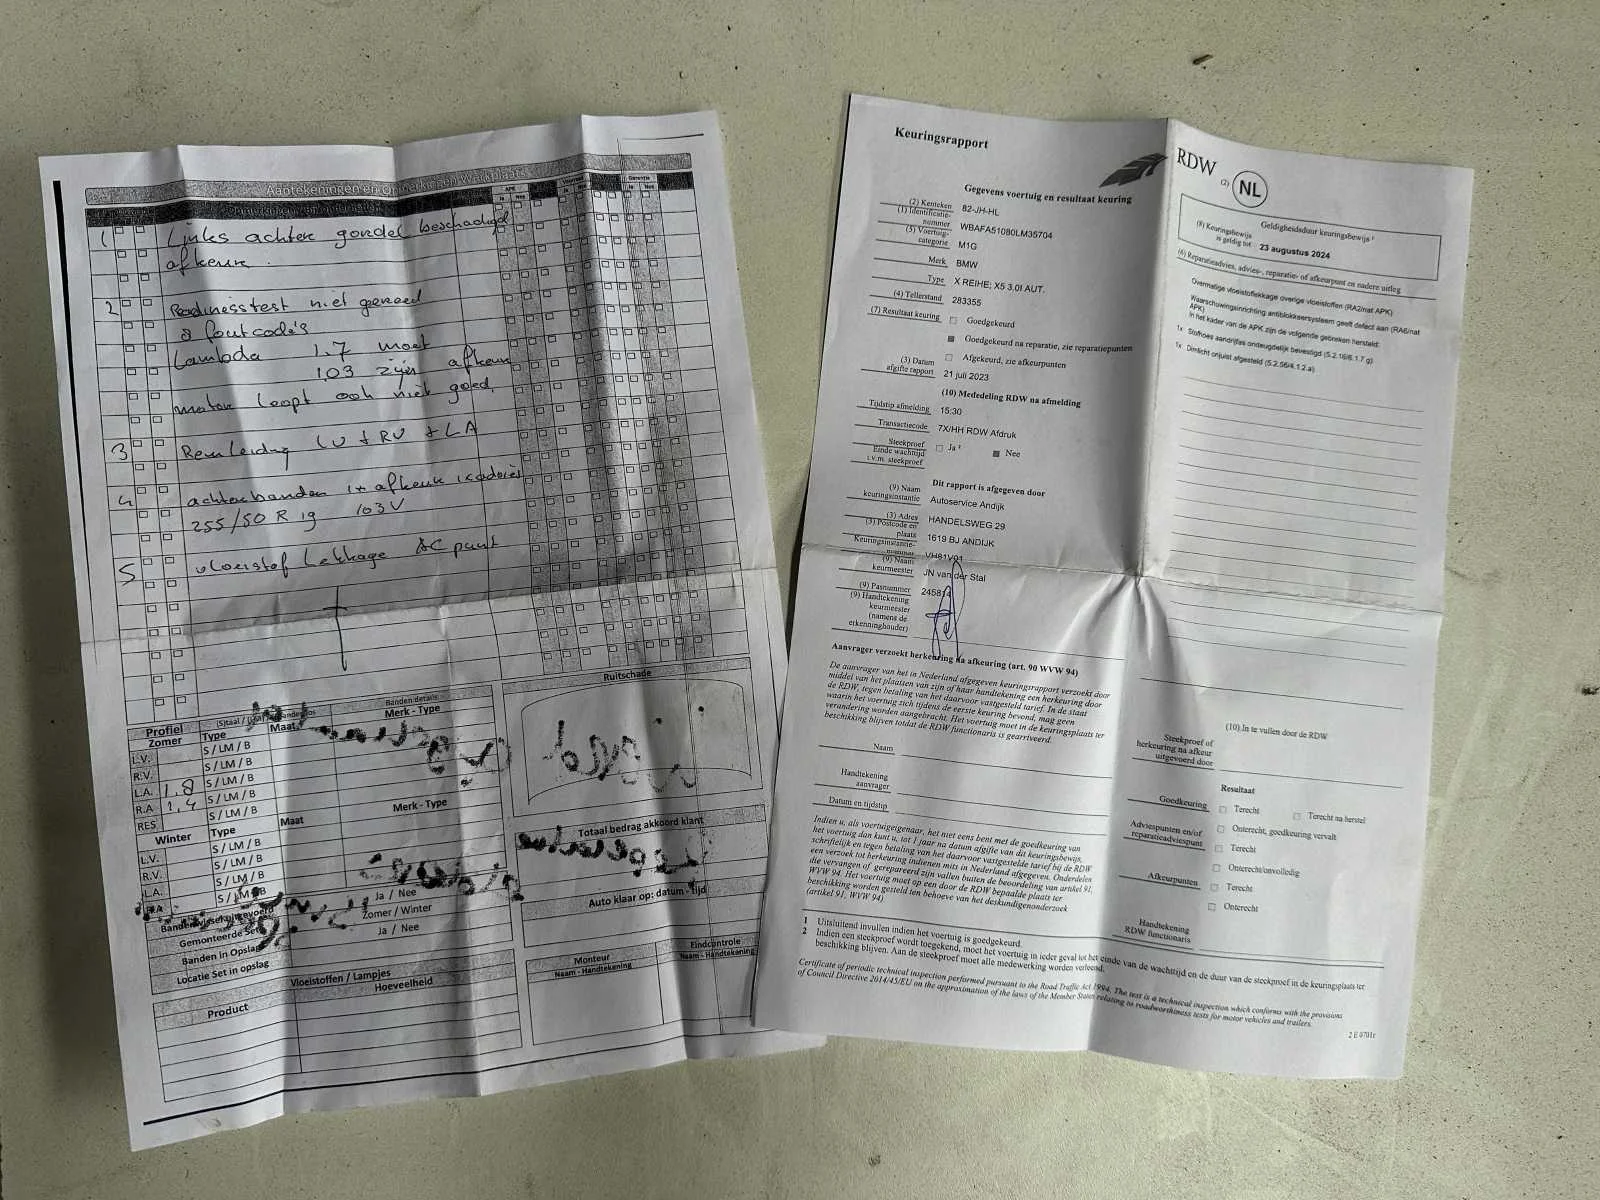 Aantekeningen en Opmerkingen Werkplaats
APK
Ja
Nee
Garantie
Ja
Nee
1 Links achter gordel beschadigd
afkeur.
2 Readinesstest niet gereed
2 foutcode's
Lambda 1.7 moet
1.03 zijn afkeur
motor loopt ook niet goed.
3 Remleiding LV + RV + LA
4 achterbanden 1x afkeur 1x advies
255/50 R 19 103V
5 vloeistof lekkage AC pomp
Banden details
Profiel
Zomer
Type
Maat
Merk - Type
L.V. S / LM / B
R.V. S / LM / B
L.A. 1.8 S / LM / B
R.A 1.4 S / LM / B
RES S / LM / B
Winter
Type
Maat
Merk - Type
L.V. S / LM / B
R.V. S / LM / B
L.A. S / LM / B
R.A. S / LM / B
Ja / Nee
Gemonteerde Set Zomer / Winter
Banden in Opslag Ja / Nee
Locatie Set in opslag
Vloeistoffen / Lampjes
Product
Hoeveelheid
Ruitschade
Totaal bedrag akkoord klant
Auto klaar op: datum - tijd
Monteur
Naam - Handtekening
Eindcontrole
Naam - Handtekening
Keuringsrapport
Gegevens voertuig en resultaat keuring
(2) Kenteken 82-JH-HL
(1) Identificatie-
nummer WBAFA51080LM35704
(5) Voertuig-
categorie M1G
Merk BMW
Type X REIHE; X5 3.0I AUT.
(4) Tellerstand 283355
(7) Resultaat keuring Goedgekeurd
Goedgekeurd na reparatie, zie reparatiepunten
Afgekeurd, zie afkeurpunten
(3) Datum
afgifte rapport 21 juli 2023
(10) Mededeling RDW na afmelding
Tijdstip afmelding 15:30
Transactiecode 7X/HH RDW Afdruk
Steekproef Ja ² Nee
Einde wachttijd
i.v.m. steekproef
Dit rapport is afgegeven door
(9) Naam
keuringsinstantie Autoservice Andijk
(3) Adres HANDELSWEG 29
(3) Postcode en
plaats 1619 BJ ANDIJK
Keuringsinstantie-
nummer VH81V01
(9) Naam
keurmeester JN van der Stal
(9) Pasnummer 245814
(9) Handtekening
keurmeester
(namens de
erkenninghouder)
Aanvrager verzoekt herkeuring na afkeuring (art. 90 WVW 94)
De aanvrager van het in Nederland afgegeven keuringsrapport verzoekt door
middel van het plaatsen van zijn of haar handtekening een herkeuring door
de RDW, tegen betaling van het daarvoor vastgesteld tarief. In de staat
waarin het voertuig zich tijdens de eerste keuring bevond, mag geen
verandering worden aangebracht. Het voertuig moet in de keuringsplaats ter
beschikking blijven totdat de RDW functionaris is gearriveerd.
Naam
Handtekening
aanvrager
Datum en tijdstip
Indien u, als voertuigeigenaar, het niet eens bent met de goedkeuring van
het voertuig dan kunt u, tot 1 jaar na datum afgifte van dit keuringsbewijs,
schriftelijk en tegen betaling van het daarvoor vastgestelde tarief bij de RDW
een verzoek tot herkeuring indienen mits in Nederland afgegeven. Onderdelen
die vervangen of gerepareerd zijn vallen buiten de beoordeling van artikel 91,
WVW 94. Het voertuig moet op een door de RDW bepaalde plaats ter
beschikking worden gesteld ten behoeve van het deskundigenonderzoek
(artikel 91, WVW 94)
RDW
(2) NL
Geldigheidsduur keuringsbewijs ¹
(8) Keuringsbewijs
is geldig tot 23 augustus 2024
(6) Reparatieadvies, advies-, reparatie- of afkeurpunt en nadere uitleg
Overmatige vloeistoflekkage overige vloeistoffen (RA2/niet APK)
Waarschuwingsinrichting antiblokkeersysteem geeft defect aan (RA6/niet
APK)
In het kader van de APK zijn de volgende gebreken hersteld:
1x Stofhoes aandrijfas ondeugdelijk bevestigd (5.2.16/6.1.7 g)
1x Dimlicht onjuist afgesteld (5.2.56/4.1.2.a)
(10) In te vullen door de RDW
Steekproef of
herkeuring na afkeur
uitgevoerd door
Resultaat
Goedkeuring Terecht Terecht na herstel
Onterecht, goedkeuring vervalt
Adviespunten en/of
reparatieadviespunt Terecht
Onterecht/onvolledig
Afkeurpunten Terecht
Onterecht
Handtekening
RDW functionaris
1 Uitsluitend invullen indien het voertuig is goedgekeurd.
2 Indien een steekproef wordt toegekend, moet het voertuig in ieder geval tot het einde van de wachttijd en de duur van de steekproef in de keuringsplaats ter
beschikking blijven. Aan de steekproef moet alle medewerking worden verleend.
Certificate of periodic technical inspection performed pursuant to the Road Traffic Act 1994. The test is a technical inspection which conforms with the provisions
of Council Directive 2014/45/EU on the approximation of the laws of the Member States relating to roadworthiness tests for motor vehicles and trailers.
2 E 0701r